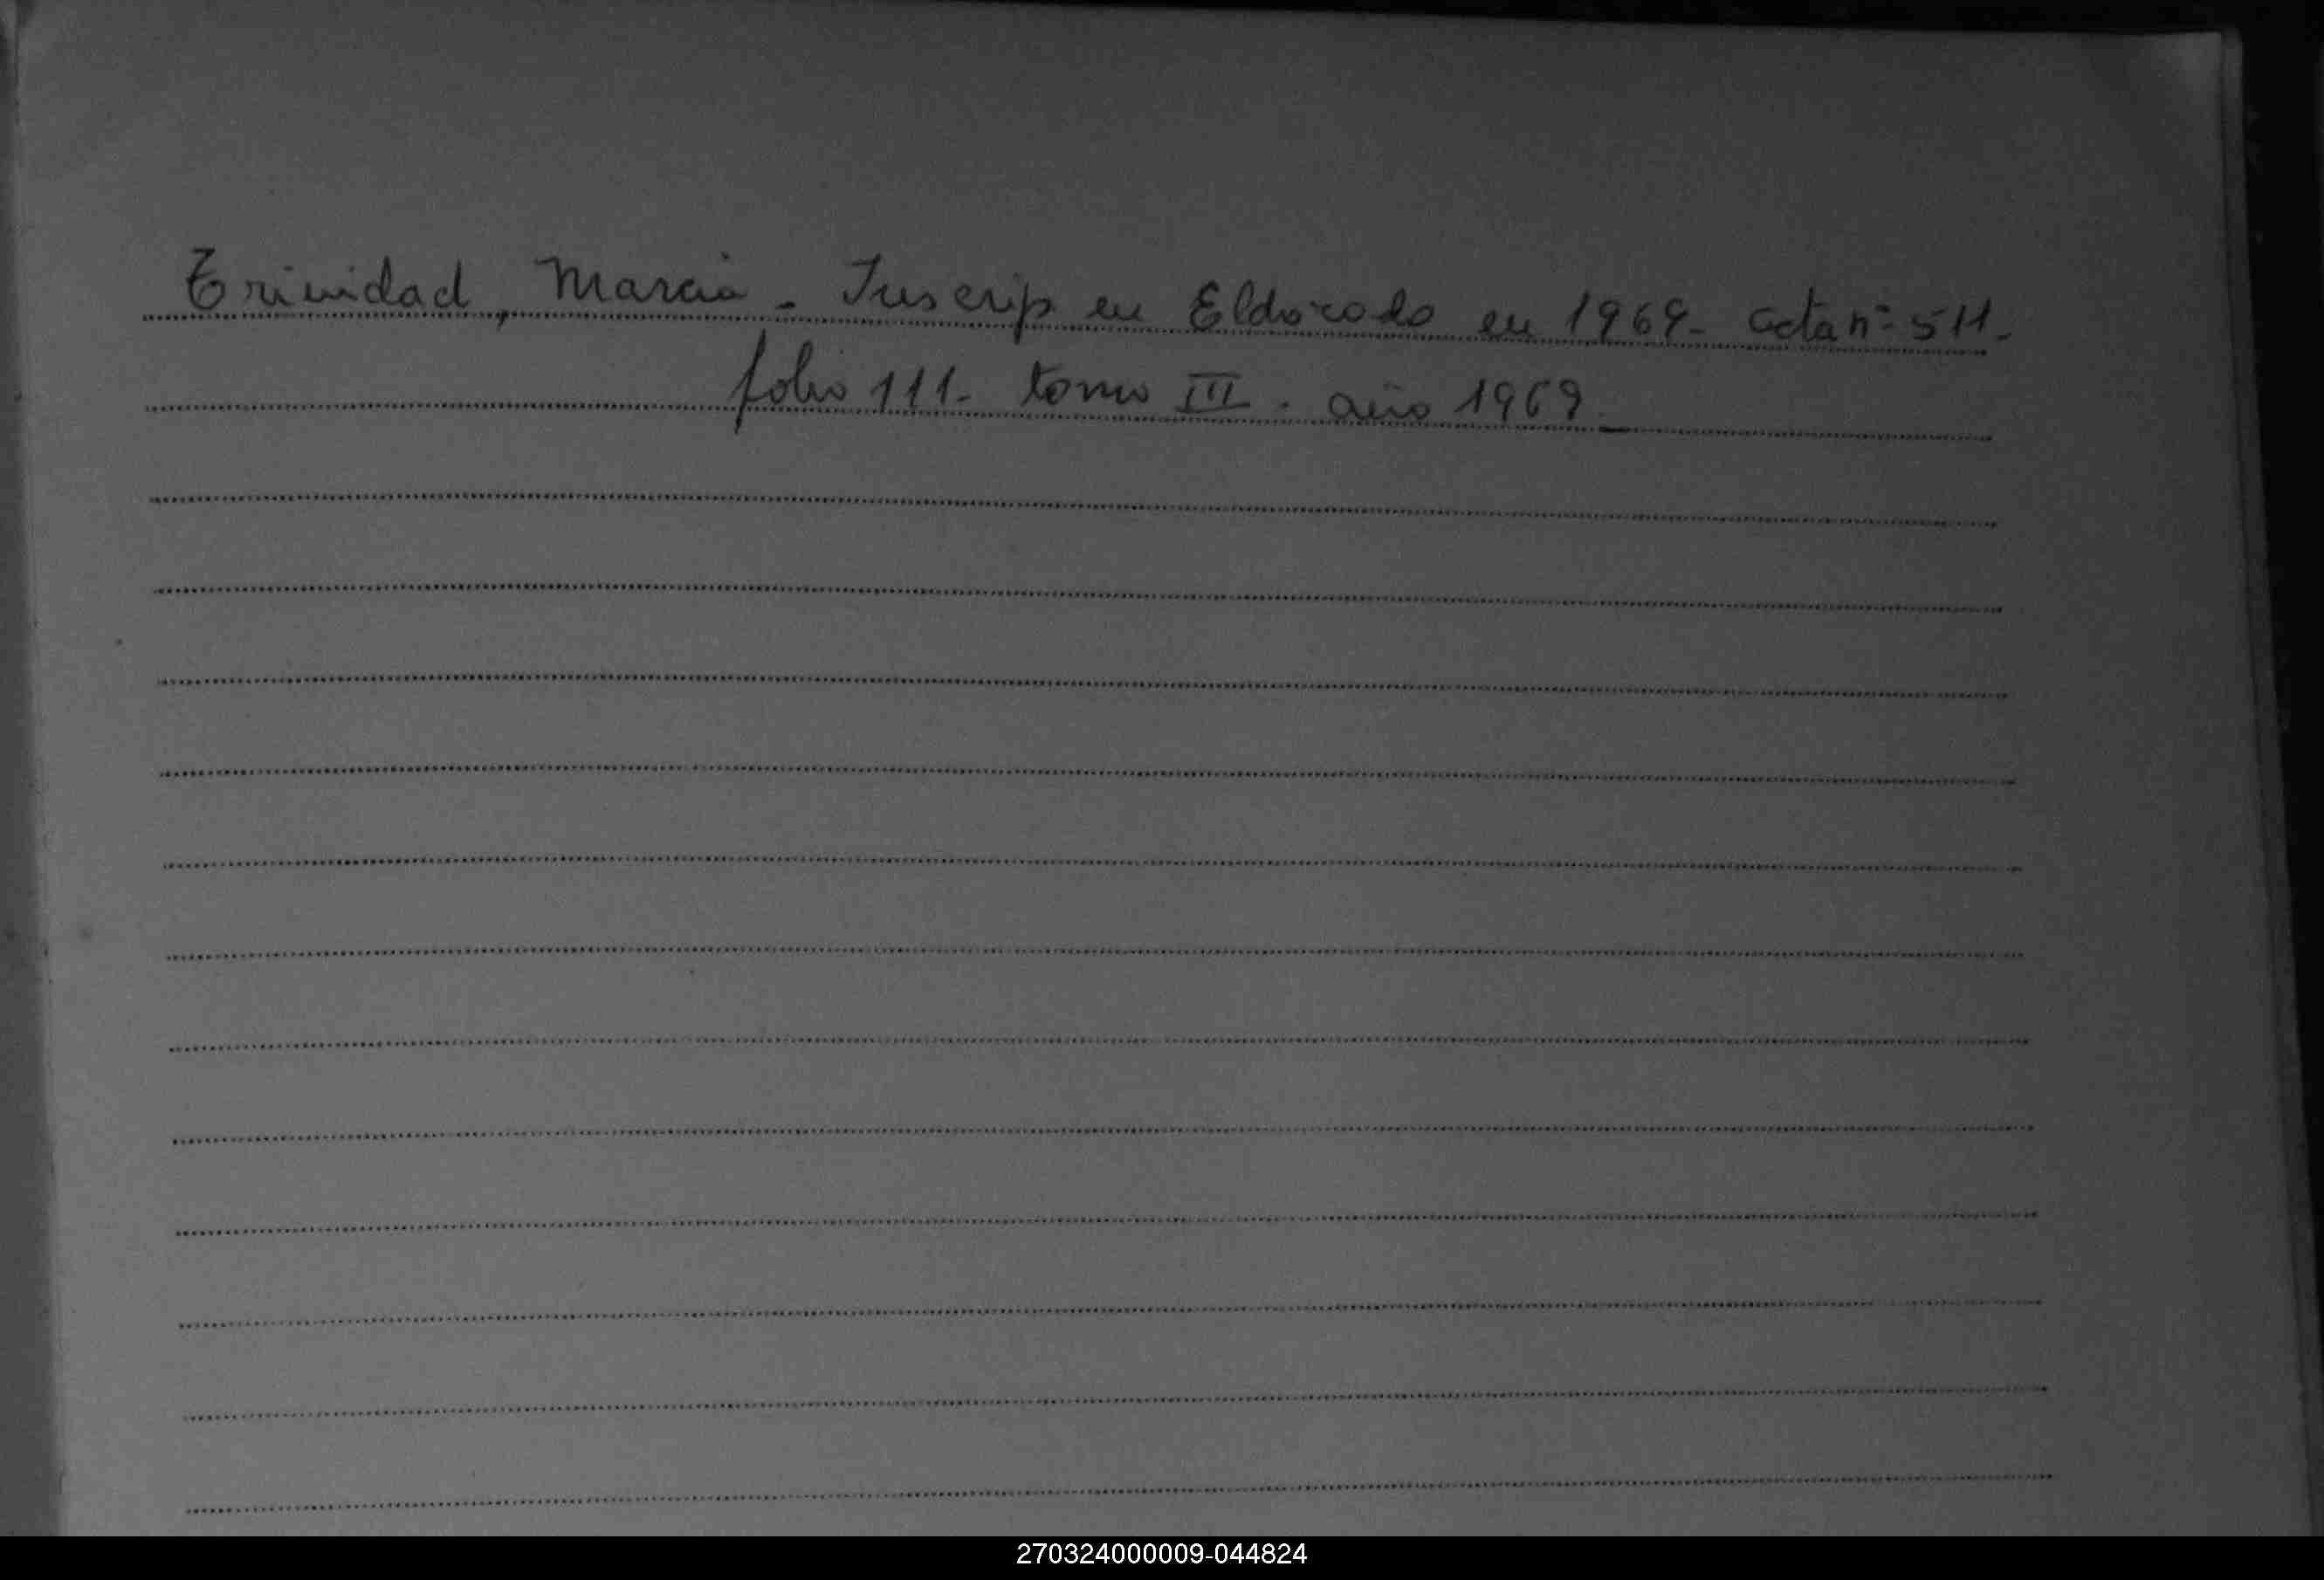 Trinidad, Marcia - Inscrip en Eldorado en 1969 - acta nº 511 -
folio 111 - tomo III . año 1969
270324000009-044824